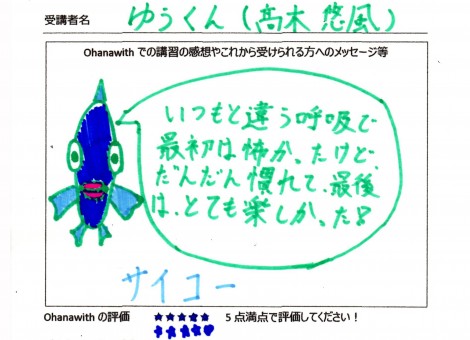 受講者名 ゆうくん(髙木 悠風)
Ohanawith での講習の感想やこれから受けられる方へのメッセージ等
いつもと違う呼吸で
最初は怖かったけど、
だんだん慣れて、最後
は、とても楽しかった!
サイコー
Ohanawith の評価 ★★★★★ 5点満点で評価してください!
★★★★♥